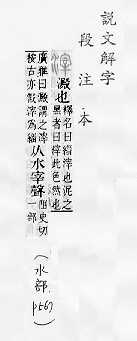 說文解字
段注本
滓
澱也釋名曰緇滓也泥之
黑者曰滓此色然也
廣雅曰澱謂之滓从水宰聲阻史切
按古亦假滓為緇一部
(水部p567)